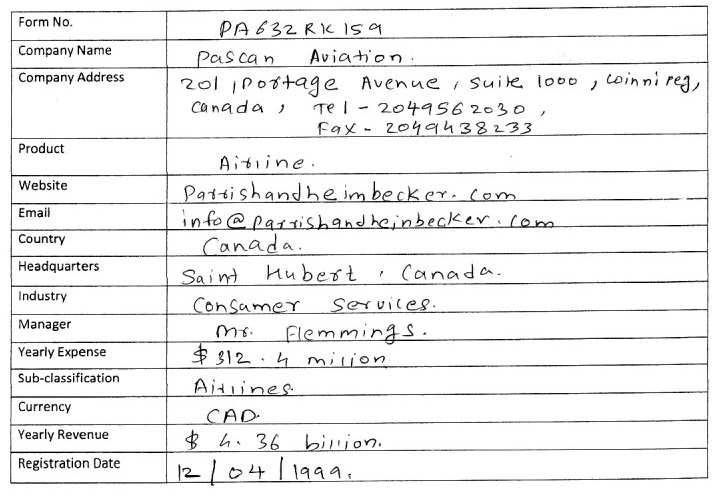 Form No. PA632RK159
Company Name Pascan Aviation.
Company Address 201, Portage Avenue, Suite 1000, Winnipeg,
Canada, Tel - 2049562030,
Fax - 2049438233
Product Airline.
Website Parrishandheimbecker.com
Email info@parrishandheinbecker.com
Country Canada.
Headquarters Saint Hubert, Canada.
Industry Consumer Services.
Manager Mr. Flemmings.
Yearly Expense $312.4 million
Sub-classification Airlines.
Currency CAD.
Yearly Revenue $4.36 billion.
Registration Date 12/04/1999.